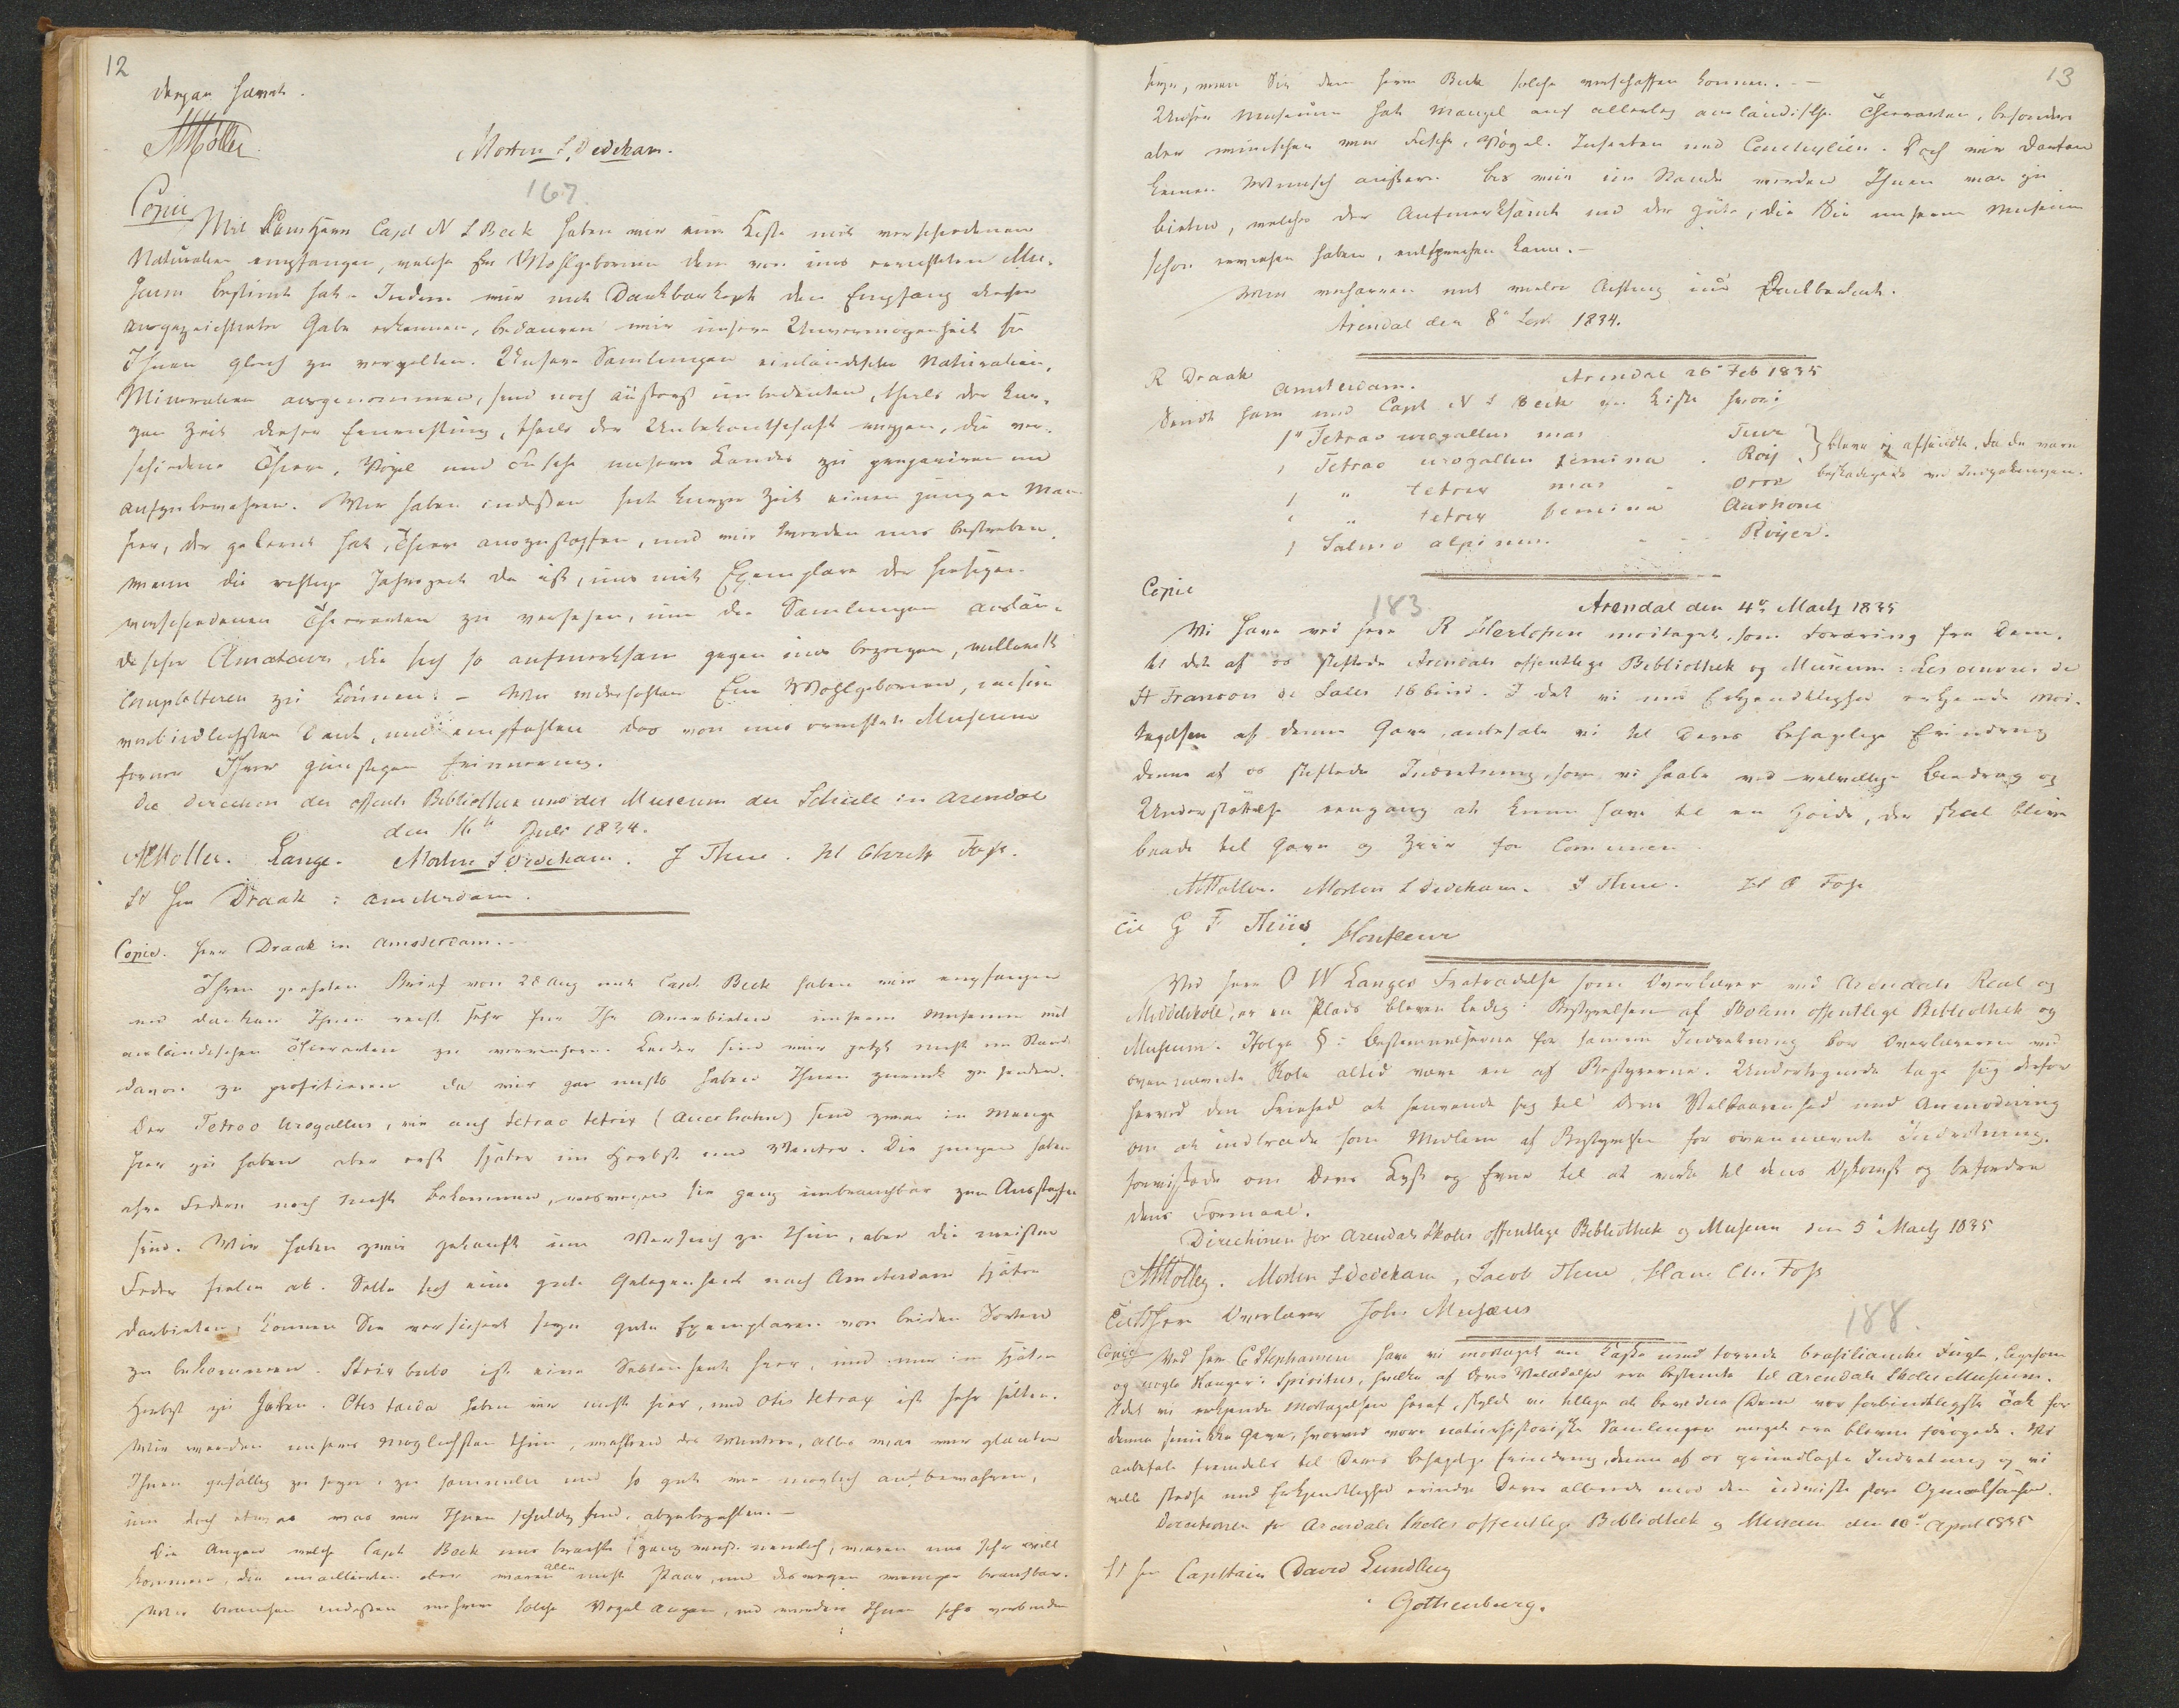 12
dengan haver.
AMöller
Morten L Dedekam.
167
Copie
Mit dem Herrn Capt N L Beck haben wir eine Kiste mit verschiedenen
Naturalien empfangen, welche Ew Wohlgeborenen dem von uns errichteten Mu-
seum bestimt hat. Indem wir mit Dankbarkeit den Empfang dieser
ausgezeichneter Gabe erkennen, bedauren wir unsere Unvermögenheit sie
Ihnen gleich zu vergelten. Unsere Samlungen einländischer Naturalien,
Mineralien ausgenommen, sind noch äusserst unbedeuten, theils der kur-
zen Zeit dieser Einrichtung, theils der Unbekantschaft wegen, die ver-
schiedene Thiere, Vögel und Fische unseres Landes zu prepariren und
aufzubewahren. Wir haben indessen seit kurzer Zeit einen jungen Man
hier, der gelernt hat Thiere auszustopfen, und wir werden uns bestreben,
wenn die richtige Jahrszeit da ist, uns mit Exemplare der hiesigen
verschiedenen Thierarten zu versehen, um die Samlungen auslän-
discher Amateurs, die sich so aufmerksam gegen uns bezeigen, vielleicht
completteren zu können. – Wir wiederhohlen Ew Wohlgeborenen, unsern
verbindlichsten Dank, und empfehlen das von uns errichtete Museum
ferner Ihrer günstigen Erinnerung.
Die Direction der offentl Bibliothek und des Museum der Schule in Arendal
den 16ten Juli 1834.
AMöller. Lange. Morten L Dedekam. J Thue. H Christ Foss.
Til Hrr Draak: Amsterdam.
Copie. Herr Draak in Amsterdam.
Ihren geehrten Brief von 28 Aug mit Capt. Beck haben wir empfangen
und danken Ihnen recht sehr für Ihr Anerbieten unserm Museum mit
ausländischen Thierarten zu vermehren. Leider sind wir jetzt nicht im Stande
davon zu profitieren da wir gar nichts haben Ihnen zurück zu senden.
Der Tetrao Urogallus, wie auch Tetrao tetrix (Auerhahn) sind zwar in Menge
hier zu haben aber erst später im Herbst und Winter. Die jungen haben
ihre Federn noch nicht bekommen, weswegen sie ganz unbrauchbar zum Ausstopfen
sind. Wir haben zwei gekauft um Versuch zu thun, aber die meisten
Federn fielen ab. Sollte sich eine gute Gelegenheit nach Amsterdam später
darbieten, können Sie versichert seyn gute Exemplaren von beiden Sorten
zu bekommen. Strix bubo ist eine Seltenheit hier, und nur im späten
Herbst zu haben. Otis tarda haben wir nicht hier, und Otis tetrax ist sehr selten.
Wir werden unsers möglichsten thun, während des Winters, alles was wir glauben
Ihnen gefällig zu seyn, zu sammeln und so gut wie möglich aufbewahren,
um doch etwas was wir Ihnen schuldig sind, abzubezahlen. –
Die Augen welche Capt Beck uns brachte waren uns sehr will
kommen, die emaillierten aber waren alle nicht Paar, und deswegen weniger brauchbar.
Wir brauchen indessen mehrere solche Vogel Augen, und werden Ihnen sehr verbunden
13
seyn, wenn Sie dem Herrn Beck solche verschaffen können. –
Unser Museum hat Mangel auf allerley ausländische Thierarten, besonders
aber wünschen wir Fische, Vögel, Insecten und Conchylien. Doch wir dürfen
keinen Wunsch äussern bis wir im Stande werden Ihnen was zu
bieten, welches der Aufmerksamkeit und der Güte, die Sie unserm Museum
schon erwiesen haben, entsprechen kann. –
Wir verharren mit vieler Achtung und Dankbarkeit.
Arendal den 8de Sept 1834.
R Draak Amsterdam. Arendal 26de Feb 1835
Sendt ham med Capt N L Beck en Kiste hvori
1 Tetrao urogallus mas Tiur
1 Tetrao urogallus femina . Roy } bleve ej afsendte, da de vare
1 " tetrix mas - Orre beskadigede ved Indpakningen.
1 " tetrix femina Aurhøne
1 Salmo alpinus - - Röyer.
Copie
183 Arendal den 4de Marts 1835
Vi have ved Herr R Herlofsen modtaget, som Foræring fra Dem,
til det af os stiftede Arendals offentlige Bibliothek og Museum: Les oeuvres de
St Francois de Sales 16 bind. I det vi med Erkjendtlighed erkjende Mod-
tagelsen af denne Gave, anbefale vi til Deres behagelige Erindring
denne af os stiftede Indretning, som vi haabe ved velvillige Bidrag og
Understöttelse engang at kunne have til en Höide, der skal blive
baade til Gavn og Ziir for Communen.
AMöller. Morten L Dedekam. J Thue. H C Foss
Til G F Thiis, Honfleur
Ved Herr O W Langes Fratrædelse som Overlærer ved Arendals Real og
Middelskole, er en Plads bleven ledig i Bestyrelsen af Skolens offentlige Bibliothek og
Museum. Ifölge § i Bestemmelserne for samme Indretning bör Overlæreren ved
ovennævnte Skole altid være en af Bestyrerne. Undertegnede tage sig derfor
herved den Frihed at henvende sig til Deres Velbaarenhed med Anmodning
om at indtræde som Medlem af Bestyrelsen for ovennævnte Indretning,
forvissede om Deres Lyst og Evne til at virke til dens Opkomst og befordre
dens Formaal.
Directionen for Arendals Skoles offentlige Bibliothek og Museum den 5de Marts 1835
AMöller. Morten L Dedekam, Jacob Thue, Hans Chr. Foss
Til Herr Overlærer John Musæus
188.
Copie Ved Herr C Stephansen have vi modtaget en Kasse med torrede brasilianske Fugle, ligesom
og nogle Slanger i Spiritus, hvilke af Deres Velædelhed ere bestemte til Arendals Skoles Museum.
Idet vi erkjende Modtagelsen heraf, skylde vi tillige at bevidne Dem vor forbindtligste Tak for
denne smukke Gave, hvorved vore naturhistoriske Samlinger meget ere blevne forögede. Vi
anbefale fremdeles til Deres behagelige Erindring, denne af os grundlagte Indretning og vi
ville stedse med Erkjendtlighed erindre Deres allerede mod den udviste store Opmærksomhed.
Directionen for Arendals Skoles offentlige Bibliothek og Museum den 10de April 1835
Til Hrr Capitain David Lundberg
Gothenburg.